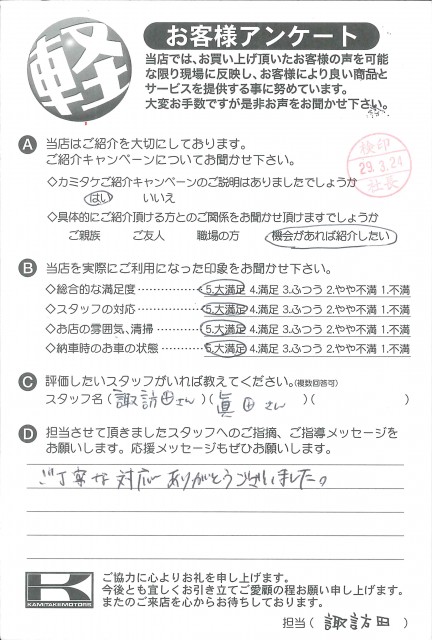 軽
お客様アンケート
当店では、お買い上げ頂いたお客様の声を可能
な限り現場に反映し、お客様により良い商品と
サービスを提供する事に努めています。
大変お手数ですが是非お声をお聞かせ下さい。
A 当店はご紹介を大切にしております。
ご紹介キャンペーンについてお聞かせ下さい。
検印
29.3.24
社長
◇カミタケご紹介キャンペーンのご説明はありましたでしょうか
はい いいえ
◇具体的にご紹介頂ける方とのご関係をお聞かせ頂けますでしょうか
ご親族 ご友人 職場の方 機会があれば紹介したい
B 当店を実際にご利用になった印象をお聞かせ下さい。
◇総合的な満足度……………5.大満足 4.満足 3.ふつう 2.やや不満 1.不満
◇スタッフの対応……………5.大満足 4.満足 3.ふつう 2.やや不満 1.不満
◇お店の雰囲気、清掃………5.大満足 4.満足 3.ふつう 2.やや不満 1.不満
◇納車時のお車の状態………5.大満足 4.満足 3.ふつう 2.やや不満 1.不満
C 評価したいスタッフがいれば教えてください。(複数回答可)
スタッフ名(諏訪田さん)(眞田さん)( )
D 担当させて頂きましたスタッフへのご指摘、ご指導メッセージを
お願いします。応援メッセージもぜひお願いします。
ご丁寧な対応ありがとうございました。
K
KAMITAKEMOTORS
ご協力に心よりお礼を申し上げます。
今後とも宜しくお引き立てご愛顧の程お願い申し上げます。
またのご来店を心からお待ちしております。
担当(諏訪田)